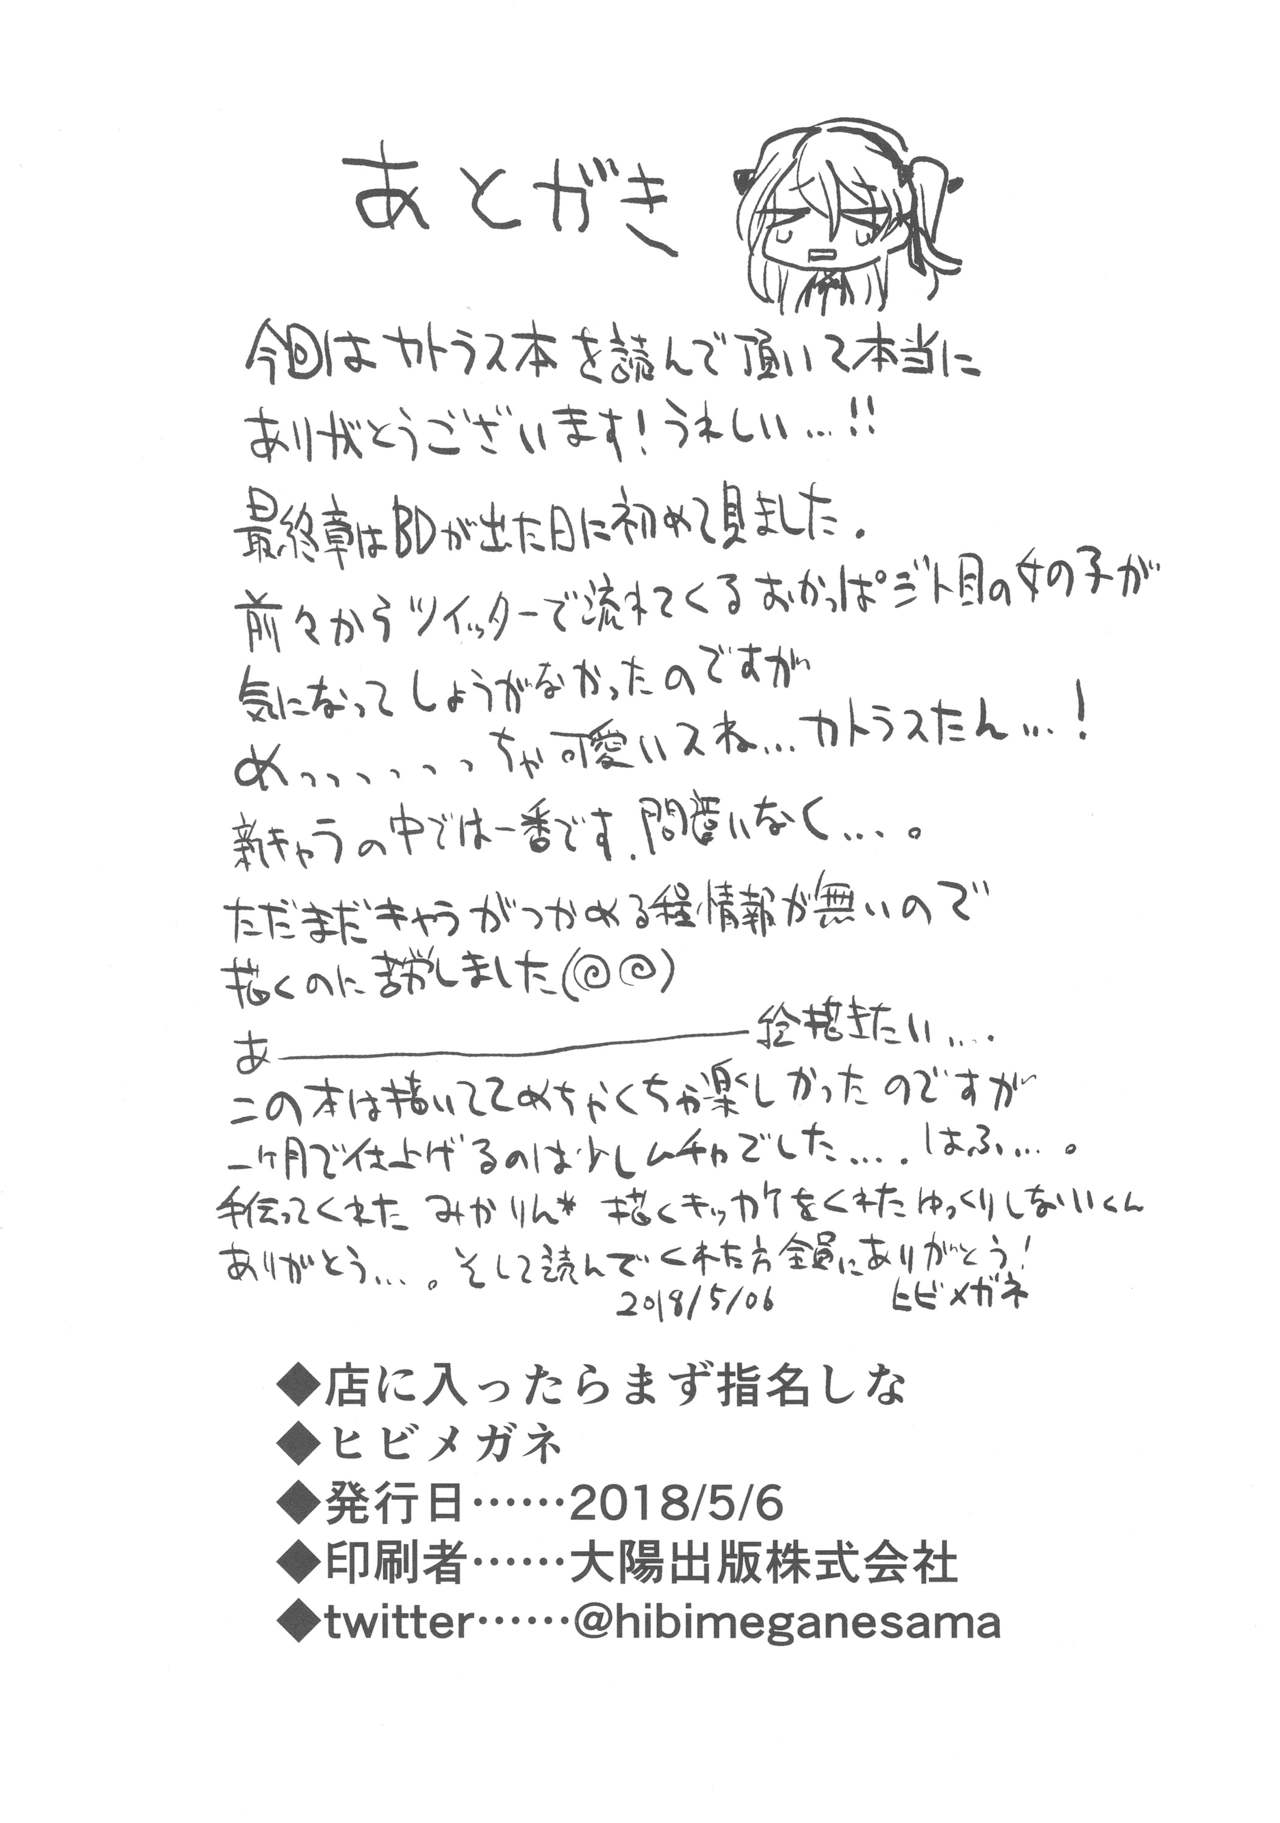 あとがき
今回はカトラス本を読んで頂いて本当に
ありがとうございます！うれしい…!!
最終章はBDが出た日に初めて見ました.
前々からツイッターで流れてくるおかっぱジト目の女の子が
気になってしょうがなかったのですが
めっっっっっっちゃ可愛いスね…カトラスたん…！
新キャラの中では一番です.間違いなく….。
ただまだキャラがつかめる程情報が無いので
描くのに苦労しました(◎◎)
あ――――――――絵描きたい….
この本は描いててめちゃくちゃ楽しかったのですが
一ヶ月で仕上げるのは少しムチャでした….はふ…。
手伝ってくれたみかりん* 描くキッカケをくれたゆっくりしないいくん
ありがとう….。そして読んでくれた方全員にありがとう！
2018/5/06 ヒビメガネ
◆店に入ったらまず指名しな
◆ヒビメガネ
◆発行日……2018/5/6
◆印刷者……大陽出版株式会社
◆twitter……@hibimeganesama